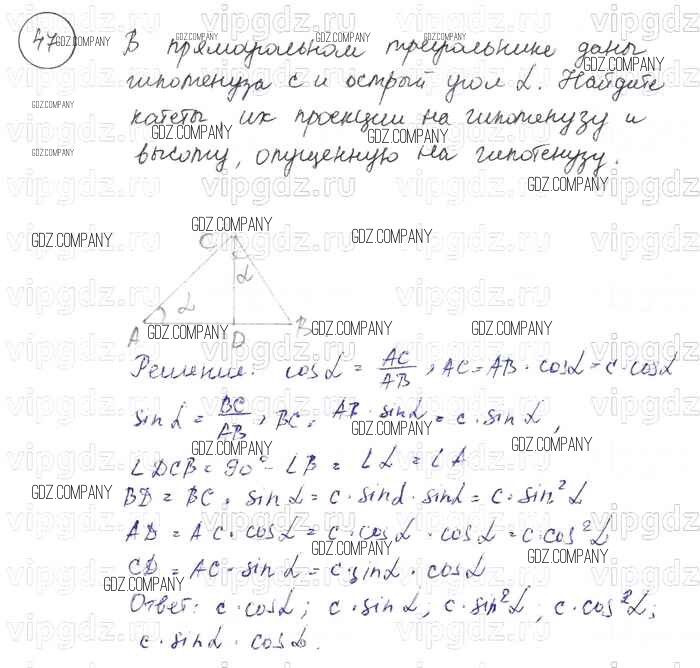 47 В прямоугольном треугольнике даны
гипотенуза c и острый угол α. Найдите
катеты их проекции на гипотенузу и
высоту, опущенную на гипотенузу.
C
α
α
A D B
Решение: cosα = AC/AB, AC = AB · cosα = c · cosα
sinα = BC/AB, BC = AB · sinα = c · sinα,
∠DCB = 90° - ∠B = ∠α = ∠A
BD = BC · sinα = c · sinα · sinα = c · sin²α
AD = AC · cosα = c · cosα · cosα = c · cos²α
CD = AC · sinα = c · sinα · cosα
Ответ: c · cosα; c · sinα; c · sin²α; c · cos²α;
c · sinα · cosα.
GDZ.COMPANY
vipgdz.ru